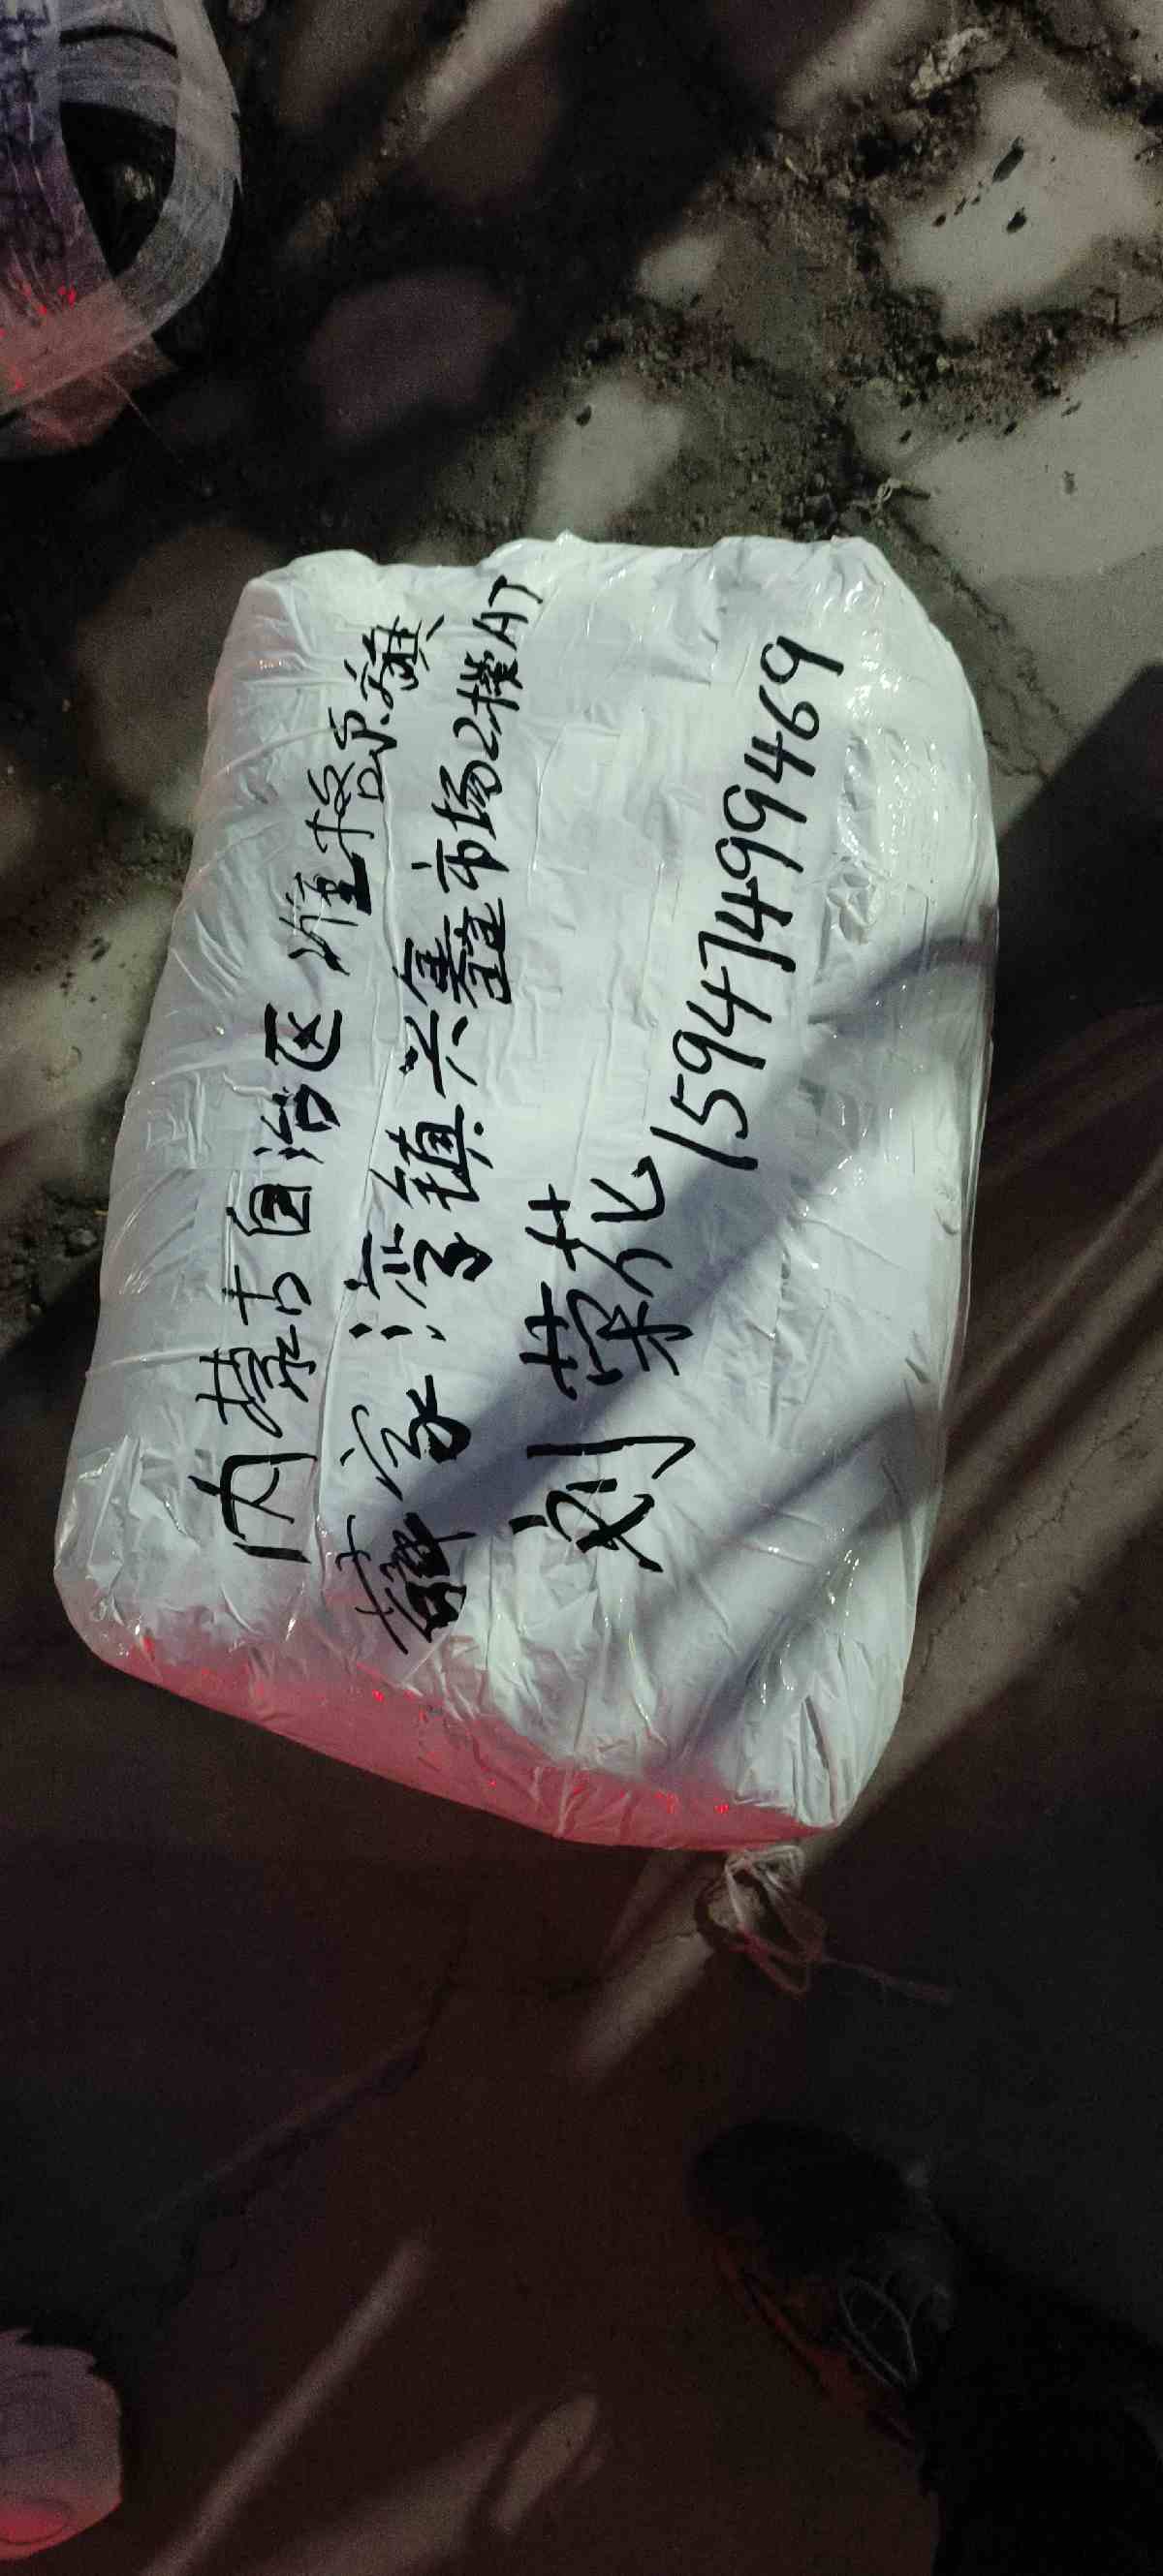 内蒙古自治区准格尔旗
薛家湾镇兴鑫市场2楼AT
刘荣花 15947499469